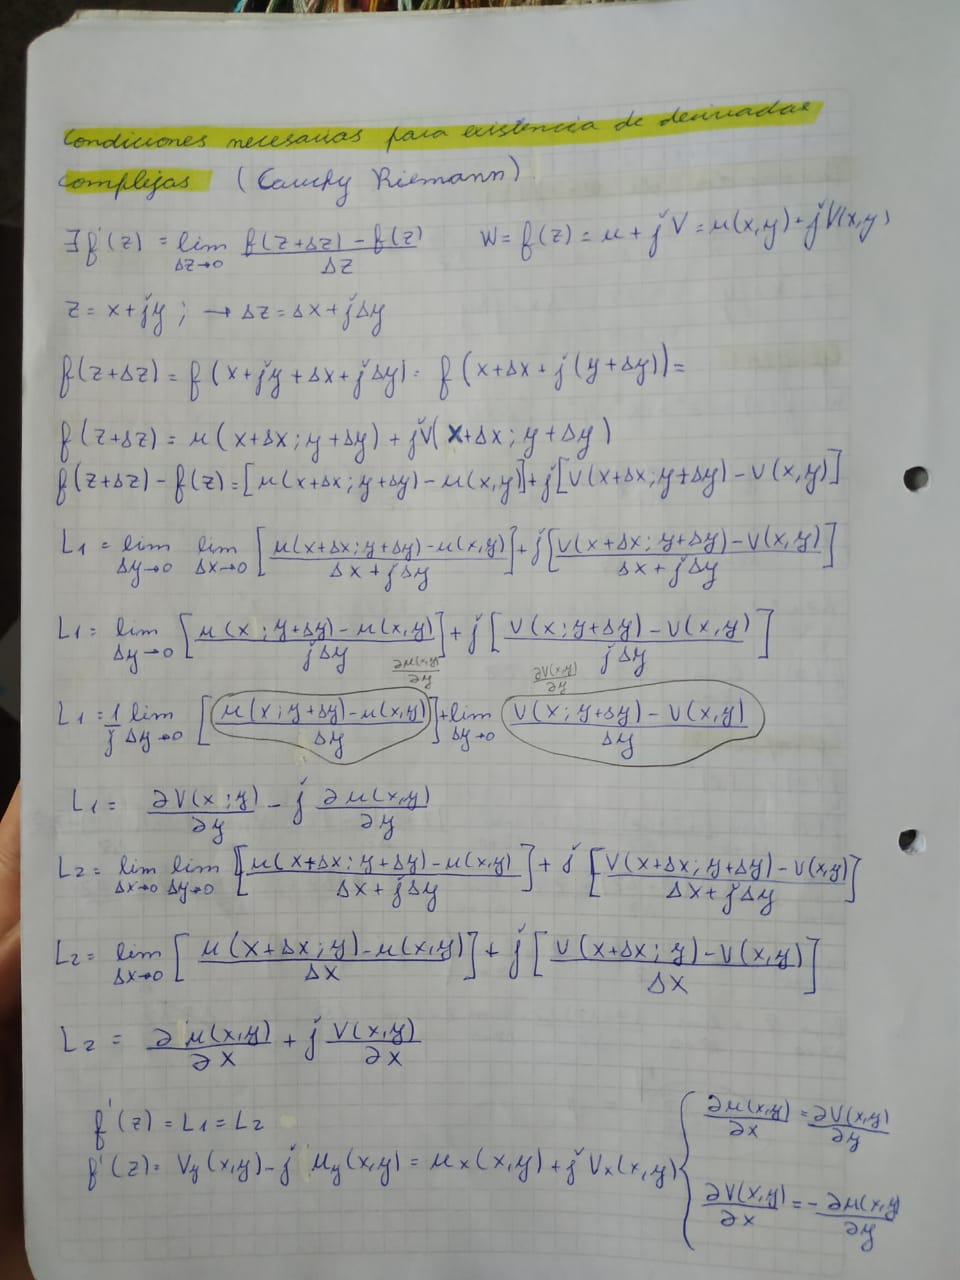 Condiciones necesarias para existencia de derivadas
complejas (Cauchy Riemann)
∃ f'(z) = lim Δz→0 (f(z+Δz) - f(z))/Δz    W = f(z) = u + jV = u(x,y) + jV(x,y)
z = x + jy ; → Δz = Δx + jΔy
f(z+Δz) = f(x+jy+Δx+jΔy) = f(x+Δx+j(y+Δy)) =
f(z+Δz) = u(x+Δx; y+Δy) + jV(x+Δx; y+Δy)
f(z+Δz) - f(z) = [u(x+Δx; y+Δy) - u(x,y)] + j[V(x+Δx; y+Δy) - V(x,y)]
L1 = lim Δy→0 lim Δx→0 [(u(x+Δx; y+Δy) - u(x,y))/(Δx+jΔy)] + j[(V(x+Δx; y+Δy) - V(x,y))/(Δx+jΔy)]
L1 = lim Δy→0 [(u(x; y+Δy) - u(x,y))/(jΔy)] + j[(V(x; y+Δy) - V(x,y))/(jΔy)]
∂u(x,y)/∂y    ∂V(x,y)/∂y
L1 = 1/j lim Δy→0 [(u(x; y+Δy) - u(x,y))/Δy] + lim Δy→0 (V(x; y+Δy) - V(x,y))/Δy
L1 = ∂V(x;y)/∂y - j ∂u(x,y)/∂y
L2 = lim Δx→0 lim Δy→0 [(u(x+Δx; y+Δy) - u(x,y))/(Δx+jΔy)] + j[(V(x+Δx; y+Δy) - V(x,y))/(Δx+jΔy)]
L2 = lim Δx→0 [(u(x+Δx; y) - u(x,y))/Δx] + j[(V(x+Δx; y) - V(x,y))/Δx]
L2 = ∂u(x,y)/∂x + j V(x,y)/∂x
f'(z) = L1 = L2
f'(z) = Vy(x,y) - j uy(x,y) = ux(x,y) + j Vx(x,y)
{ ∂u(x,y)/∂x = ∂V(x,y)/∂y
∂V(x,y)/∂x = - ∂u(x,y)/∂y